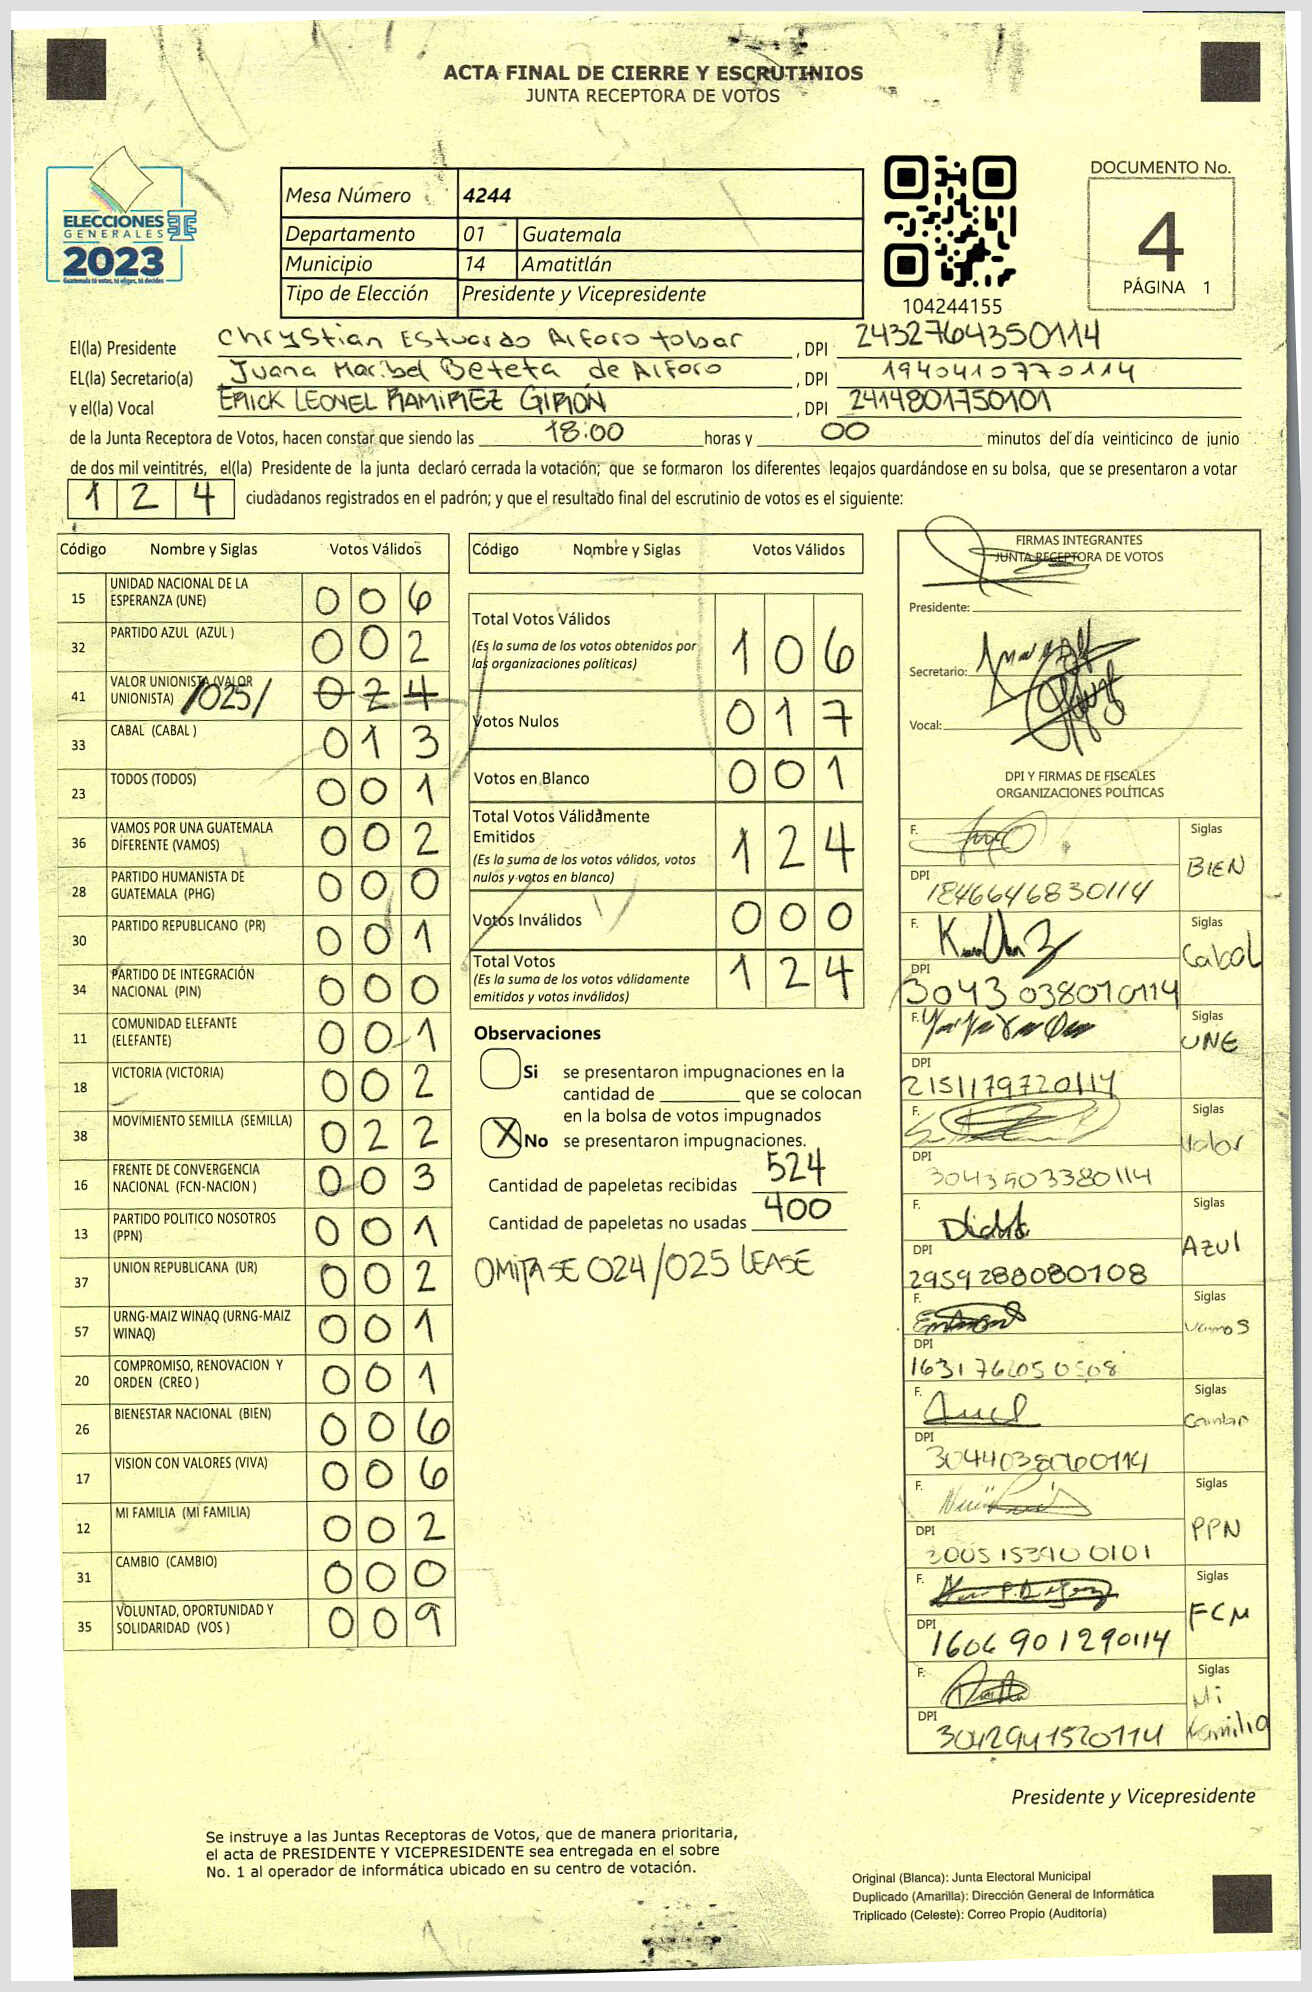 ACTA FINAL DE CIERRE Y ESCRUTINIOS
JUNTA RECEPTORA DE VOTOS
ELECCIONES
GENERALES
2023
Guatemala tú votas, tú eliges, tú decides
Mesa Número 4244
Departamento 01 Guatemala
Municipio 14 Amatitlán
Tipo de Elección Presidente y Vicepresidente
104244155
DOCUMENTO No.
4
PÁGINA 1
El(la) Presidente Chrystian Estuardo Alforo tobar , DPI 2432764350114
EL(la) Secretario(a) Juana Maribel Beteta de Alforo , DPI 1940410770114
y el(la) Vocal ERICK LEONEL RAMIREZ GIRON , DPI 2414801750101
de la Junta Receptora de Votos, hacen constar que siendo las 18:00 horas y 00 minutos del día veinticinco de junio
de dos mil veintitrés, el(la) Presidente de la junta declaró cerrada la votación; que se formaron los diferentes legajos guardándose en su bolsa, que se presentaron a votar
1 2 4 ciudadanos registrados en el padrón; y que el resultado final del escrutinio de votos es el siguiente:
Código Nombre y Siglas Votos Válidos
15 UNIDAD NACIONAL DE LA ESPERANZA (UNE) 0 0 6
32 PARTIDO AZUL (AZUL ) 0 0 2
41 VALOR UNIONISTA (VALOR UNIONISTA) /025/ 0 2 4
33 CABAL (CABAL ) 0 1 3
23 TODOS (TODOS) 0 0 1
36 VAMOS POR UNA GUATEMALA DIFERENTE (VAMOS) 0 0 2
28 PARTIDO HUMANISTA DE GUATEMALA (PHG) 0 0 0
30 PARTIDO REPUBLICANO (PR) 0 0 1
34 PARTIDO DE INTEGRACIÓN NACIONAL (PIN) 0 0 0
11 COMUNIDAD ELEFANTE (ELEFANTE) 0 0 1
18 VICTORIA (VICTORIA) 0 0 2
38 MOVIMIENTO SEMILLA (SEMILLA) 0 2 2
16 FRENTE DE CONVERGENCIA NACIONAL (FCN-NACION ) 0 0 3
13 PARTIDO POLITICO NOSOTROS (PPN) 0 0 1
37 UNION REPUBLICANA (UR) 0 0 2
57 URNG-MAIZ WINAQ (URNG-MAIZ WINAQ) 0 0 1
20 COMPROMISO, RENOVACION Y ORDEN (CREO ) 0 0 1
26 BIENESTAR NACIONAL (BIEN) 0 0 6
17 VISION CON VALORES (VIVA) 0 0 6
12 MI FAMILIA (MI FAMILIA) 0 0 2
31 CAMBIO (CAMBIO) 0 0 0
35 VOLUNTAD, OPORTUNIDAD Y SOLIDARIDAD (VOS ) 0 0 9
Código Nombre y Siglas Votos Válidos
Total Votos Válidos 1 0 6
(Es la suma de los votos obtenidos por
las organizaciones políticas)
Votos Nulos 0 1 7
Votos en Blanco 0 0 1
Total Votos Válidamente
Emitidos 1 2 4
(Es la suma de los votos válidos, votos
nulos y votos en blanco)
Votos Inválidos 0 0 0
Total Votos 1 2 4
(Es la suma de los votos válidamente
emitidos y votos inválidos)
Observaciones
Si se presentaron impugnaciones en la
cantidad de ________ que se colocan
en la bolsa de votos impugnados
X No se presentaron impugnaciones.
Cantidad de papeletas recibidas 524
Cantidad de papeletas no usadas 400
OMITASE 024/025 LEASE
FIRMAS INTEGRANTES
JUNTA RECEPTORA DE VOTOS
Presidente:
Secretario:
Vocal:
DPI Y FIRMAS DE FISCALES
ORGANIZACIONES POLÍTICAS
F. Siglas BIEN
DPI 1846646830114
F. Siglas Cabal
DPI 3043038010114
F. Siglas UNE
DPI 2151179720114
F. Siglas Valor
DPI 3043503380114
F. Siglas Azul
DPI 2959288080108
F. Siglas Vamos
DPI
F. Siglas
DPI 3044038060114
F. Siglas PPN
DPI 3005153900101
F. Siglas FCM
DPI 1606901290114
F. Siglas Mi Familia
DPI 3042941520114
Presidente y Vicepresidente
Se instruye a las Juntas Receptoras de Votos, que de manera prioritaria,
el acta de PRESIDENTE Y VICEPRESIDENTE sea entregada en el sobre
No. 1 al operador de informática ubicado en su centro de votación.
Original (Blanca): Junta Electoral Municipal
Duplicado (Amarilla): Dirección General de Informática
Triplicado (Celeste): Correo Propio (Auditoría)